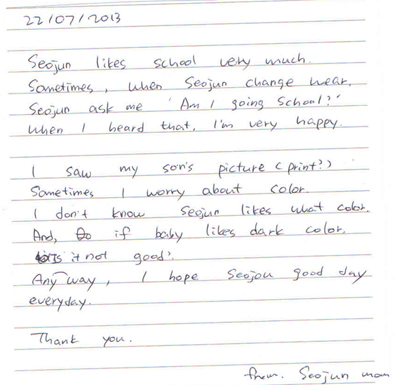 22/07/2013
Seojun likes school very much.
Sometimes, when Seojun change wear,
Seojun ask me 'Am I going School?'
When I heard that, I'm very happy.
I saw my son's picture (print?)
Sometimes I worry about color.
I don't know Seojun likes what color.
And, if baby likes dark color.
is it not good?
Any way, I hope Seojou good day
everyday.
Thank you.
from. Seojun mom